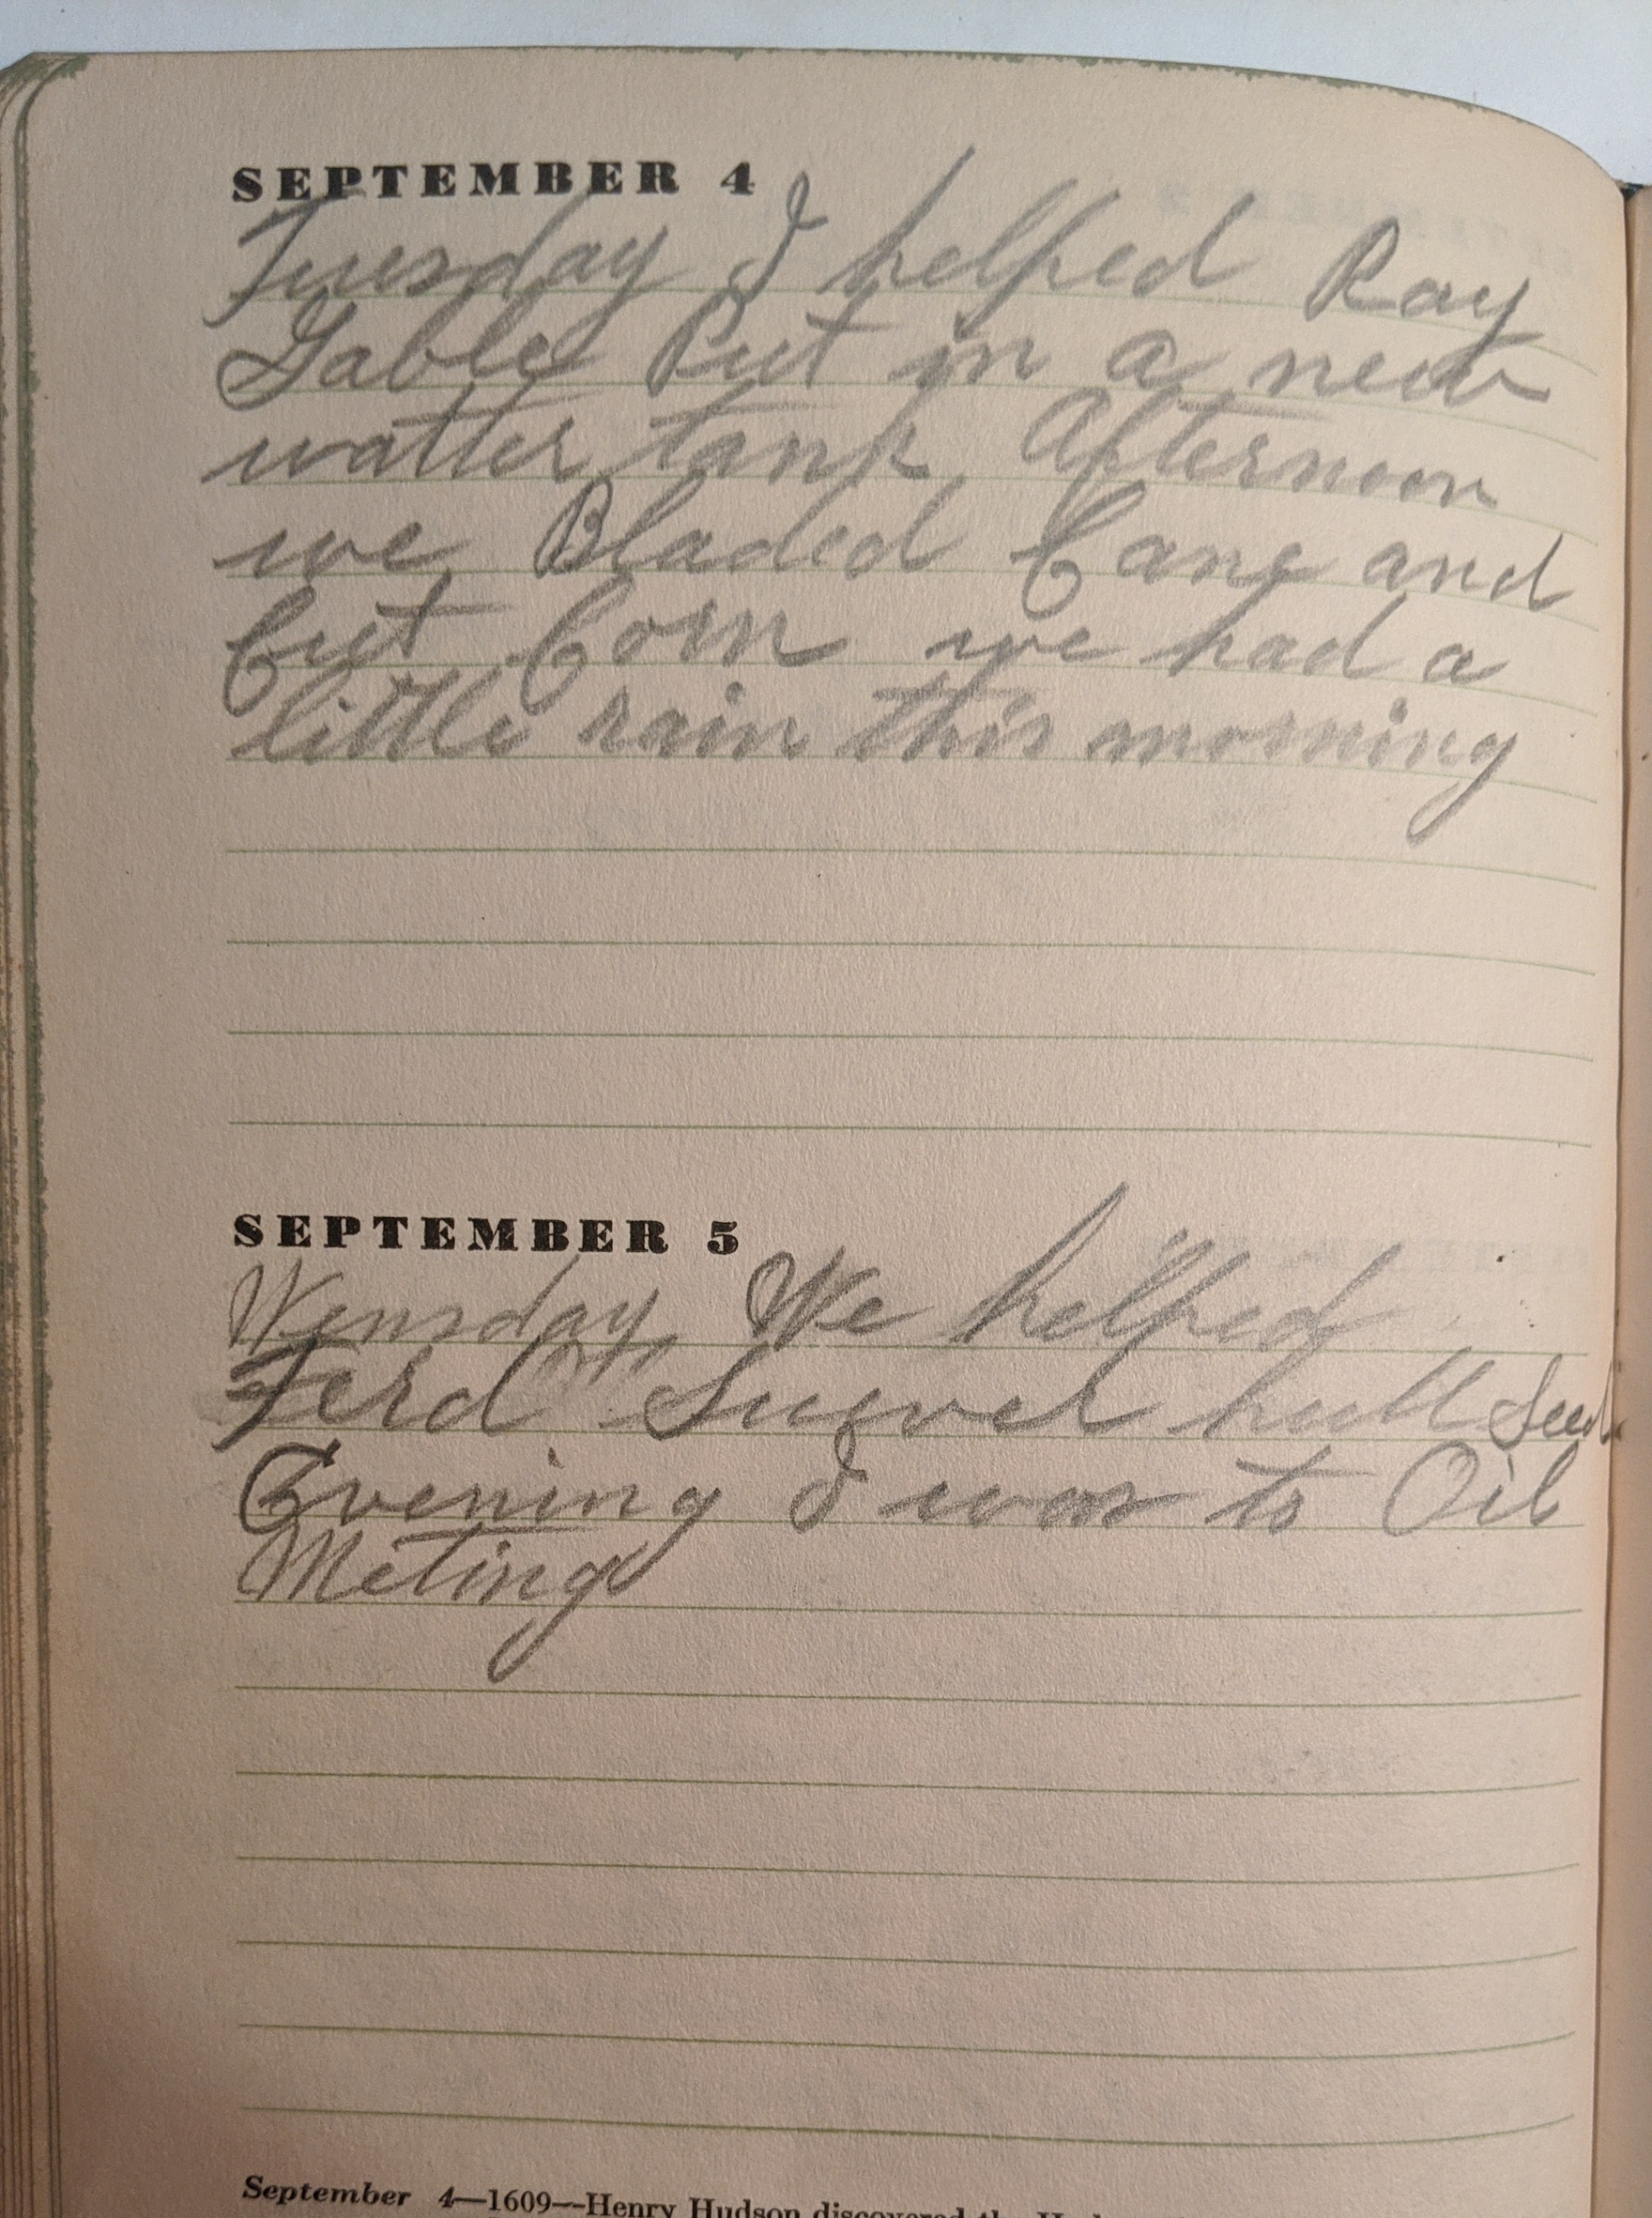 SEPTEMBER 4
Tuesday I helped Ray
Gable Put in a new
watter tank Afternoon
we Bladed Cane and
Cut Corn we had a
little rain this morning
SEPTEMBER 5
Wensday We helped
Ferd hull Seed
Evening I was to Oil
Meting
September 4—1609—Henry Hudson discovered the